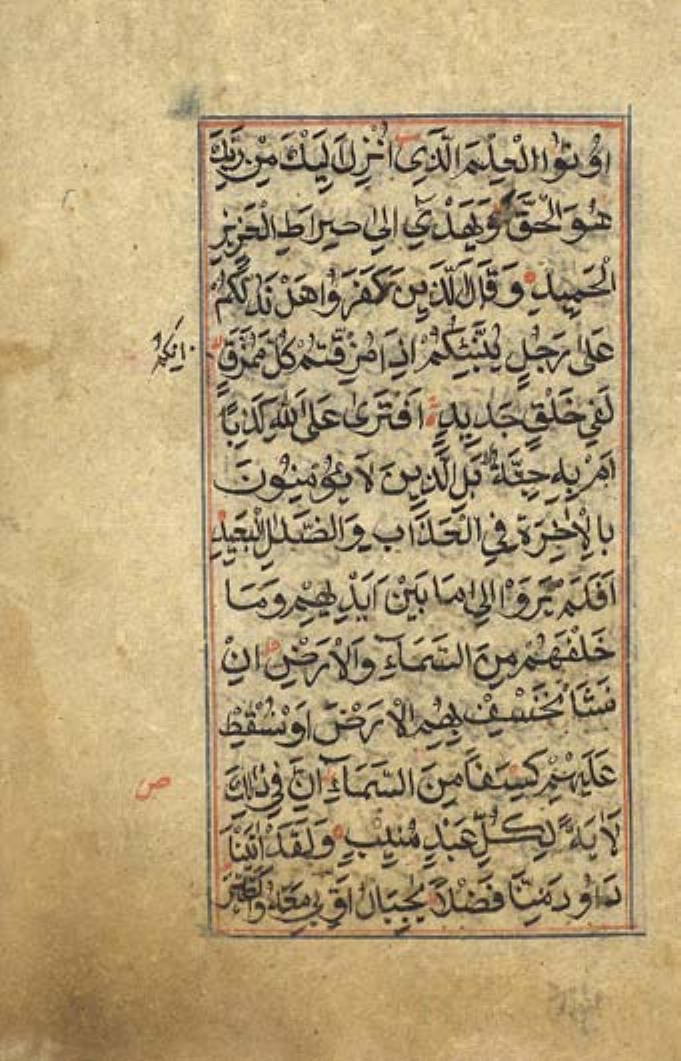 اُوْتُوا الْعِلْمَ الَّذِىْ اُنْزِلَ اِلَيْكَ مِنْ رَّبِّكَ
هُوَ الْحَقَّ وَيَهْدِىْ اِلٰى صِرَاطِ الْعَزِيْزِ
الْحَمِيْدِ وَقَالَ الَّذِيْنَ كَفَرُوْا هَلْ نَدُلُّكُمْ
عَلٰى رَجُلٍ يُّنَبِّئُكُمْ اِذَا مُزِّقْتُمْ كُلَّ مُمَزَّقٍ
لَفِىْ خَلْقٍ جَدِيْدٍ اَفْتَرٰى عَلَى اللّٰهِ كَذِبًا
اَمْ بِهٖ جِنَّةٌ بَلِ الَّذِيْنَ لَا يُؤْمِنُوْنَ
بِالْاٰخِرَةِ فِى الْعَذَابِ وَالضَّلٰلِ الْبَعِيْدِ
اَفَلَمْ يَرَوْا اِلٰى مَا بَيْنَ اَيْدِيْهِمْ وَمَا
خَلْفَهُمْ مِنَ السَّمَآءِ وَالْاَرْضِ اِنْ
نَشَأْ نَخْسِفْ بِهِمُ الْاَرْضَ اَوْ نُسْقِطْ
عَلَيْهِمْ كِسَفًا مِنَ السَّمَآءِ اِنَّ فِىْ ذٰلِكَ
لَاٰيَةً لِكُلِّ عَبْدٍ مُنِيْبٍ وَلَقَدْ اٰتَيْنَا
دَاوٗدَ مِنَّا فَضْلًا يٰجِبَالُ اَوِّبِىْ مَعَهٗ وَالطَّيْرَ
ص